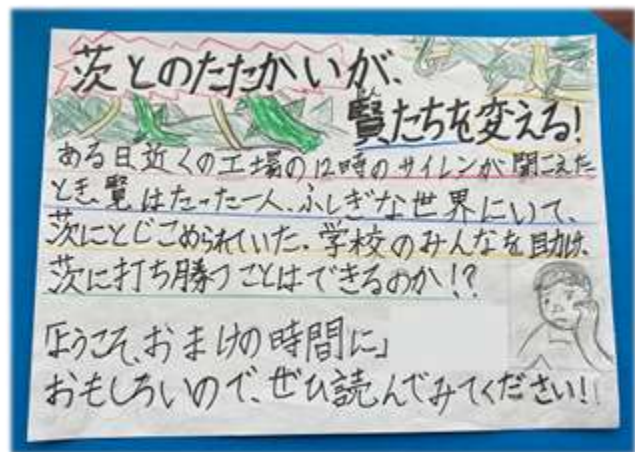 茨とのたたかいが、
賢たちを変える!
ある日近くの工場の12時のサイレンが聞こえた
とき、賢はたった一人、ふしぎな世界にいて、
茨にとじこめられていた。学校のみんなを助け、
茨に打ち勝つことはできるのか!?
『ようこそ、おまけの時間に』
おもしろいので、ぜひ読んでみてください!!